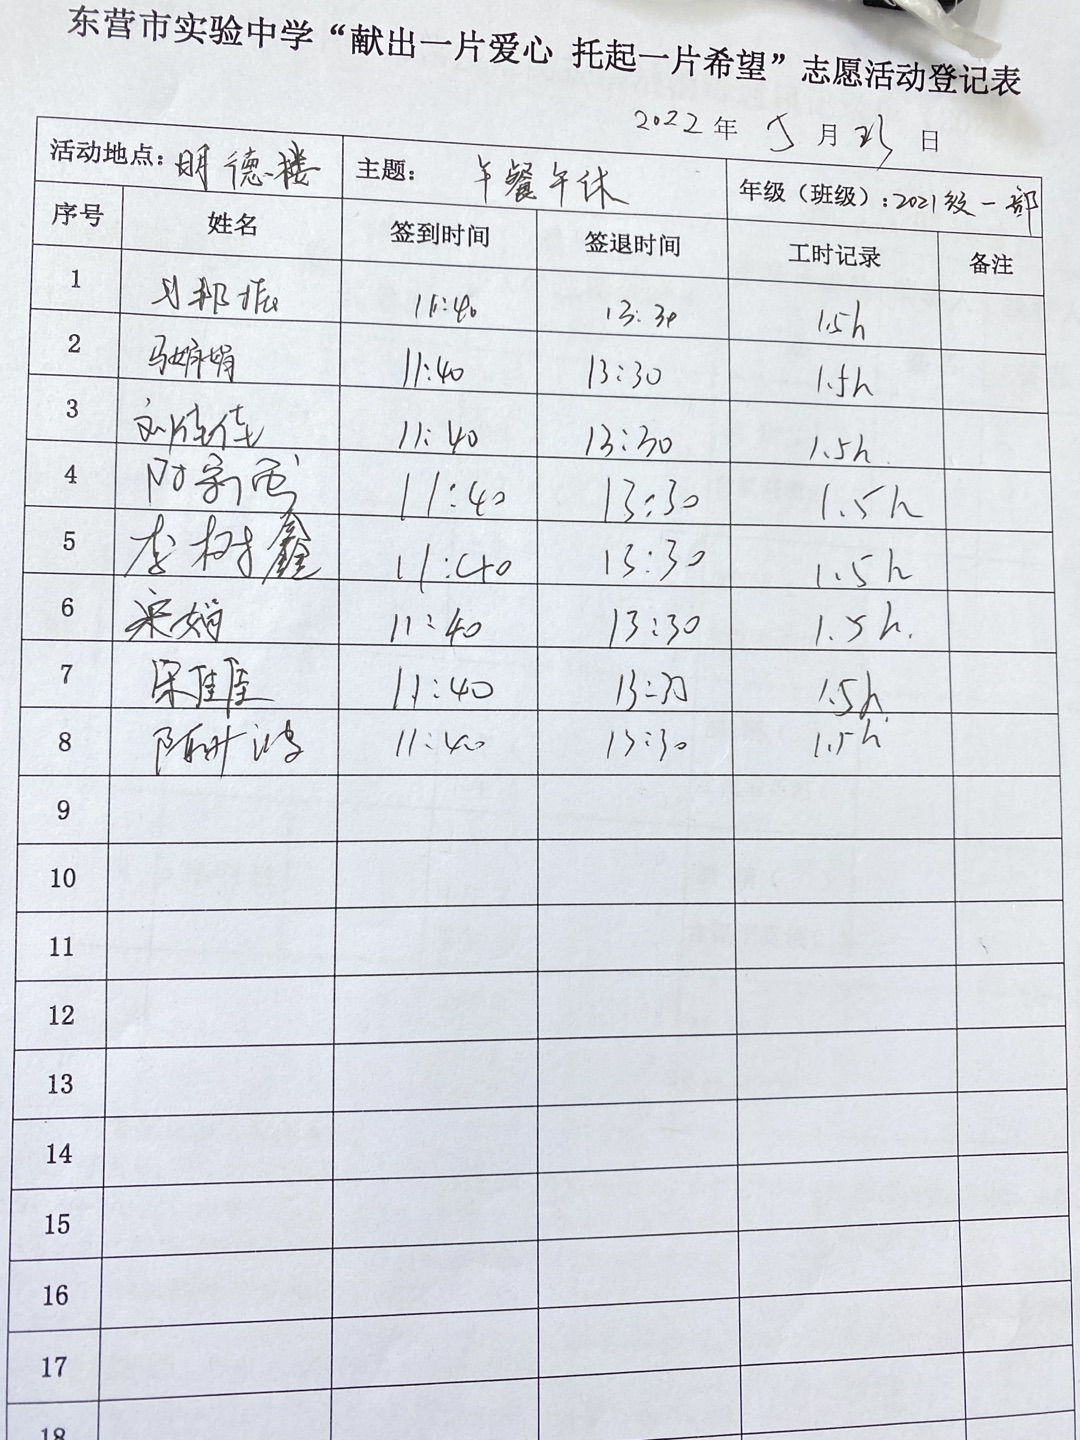 东营市实验中学“献出一片爱心 托起一片希望”志愿活动登记表
2022年 5月 日
活动地点：明德楼 主题： 午餐午休 年级（班级）：2021级一部
序号 姓名 签到时间 签退时间 工时记录 备注
1 11:40 13:30 1.5h
2 马娟娟 11:40 13:30 1.5h
3 刘佳佳 11:40 13:30 1.5h
4 11:40 13:30 1.5h
5 李树鑫 11:40 13:30 1.5h
6 宋娟 11:40 13:30 1.5h.
7 宋佳 11:40 13:30 1.5h
8 11:40 13:30 1.5h
9
10
11
12
13
14
15
16
17
18